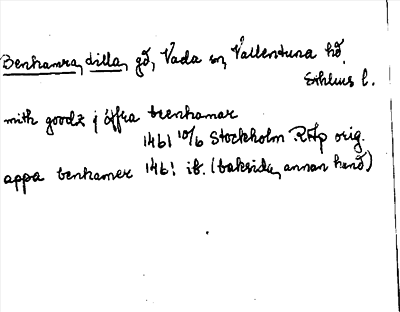 Benhamra, dilla, gd, Vada sn, Vallentuna hd.
Sthlms l.
mith goodz j öffra beenhamar
1461 10/6 Stockholm RAp orig.
appa benhamer 1461 ib. (baksida, annan hand)